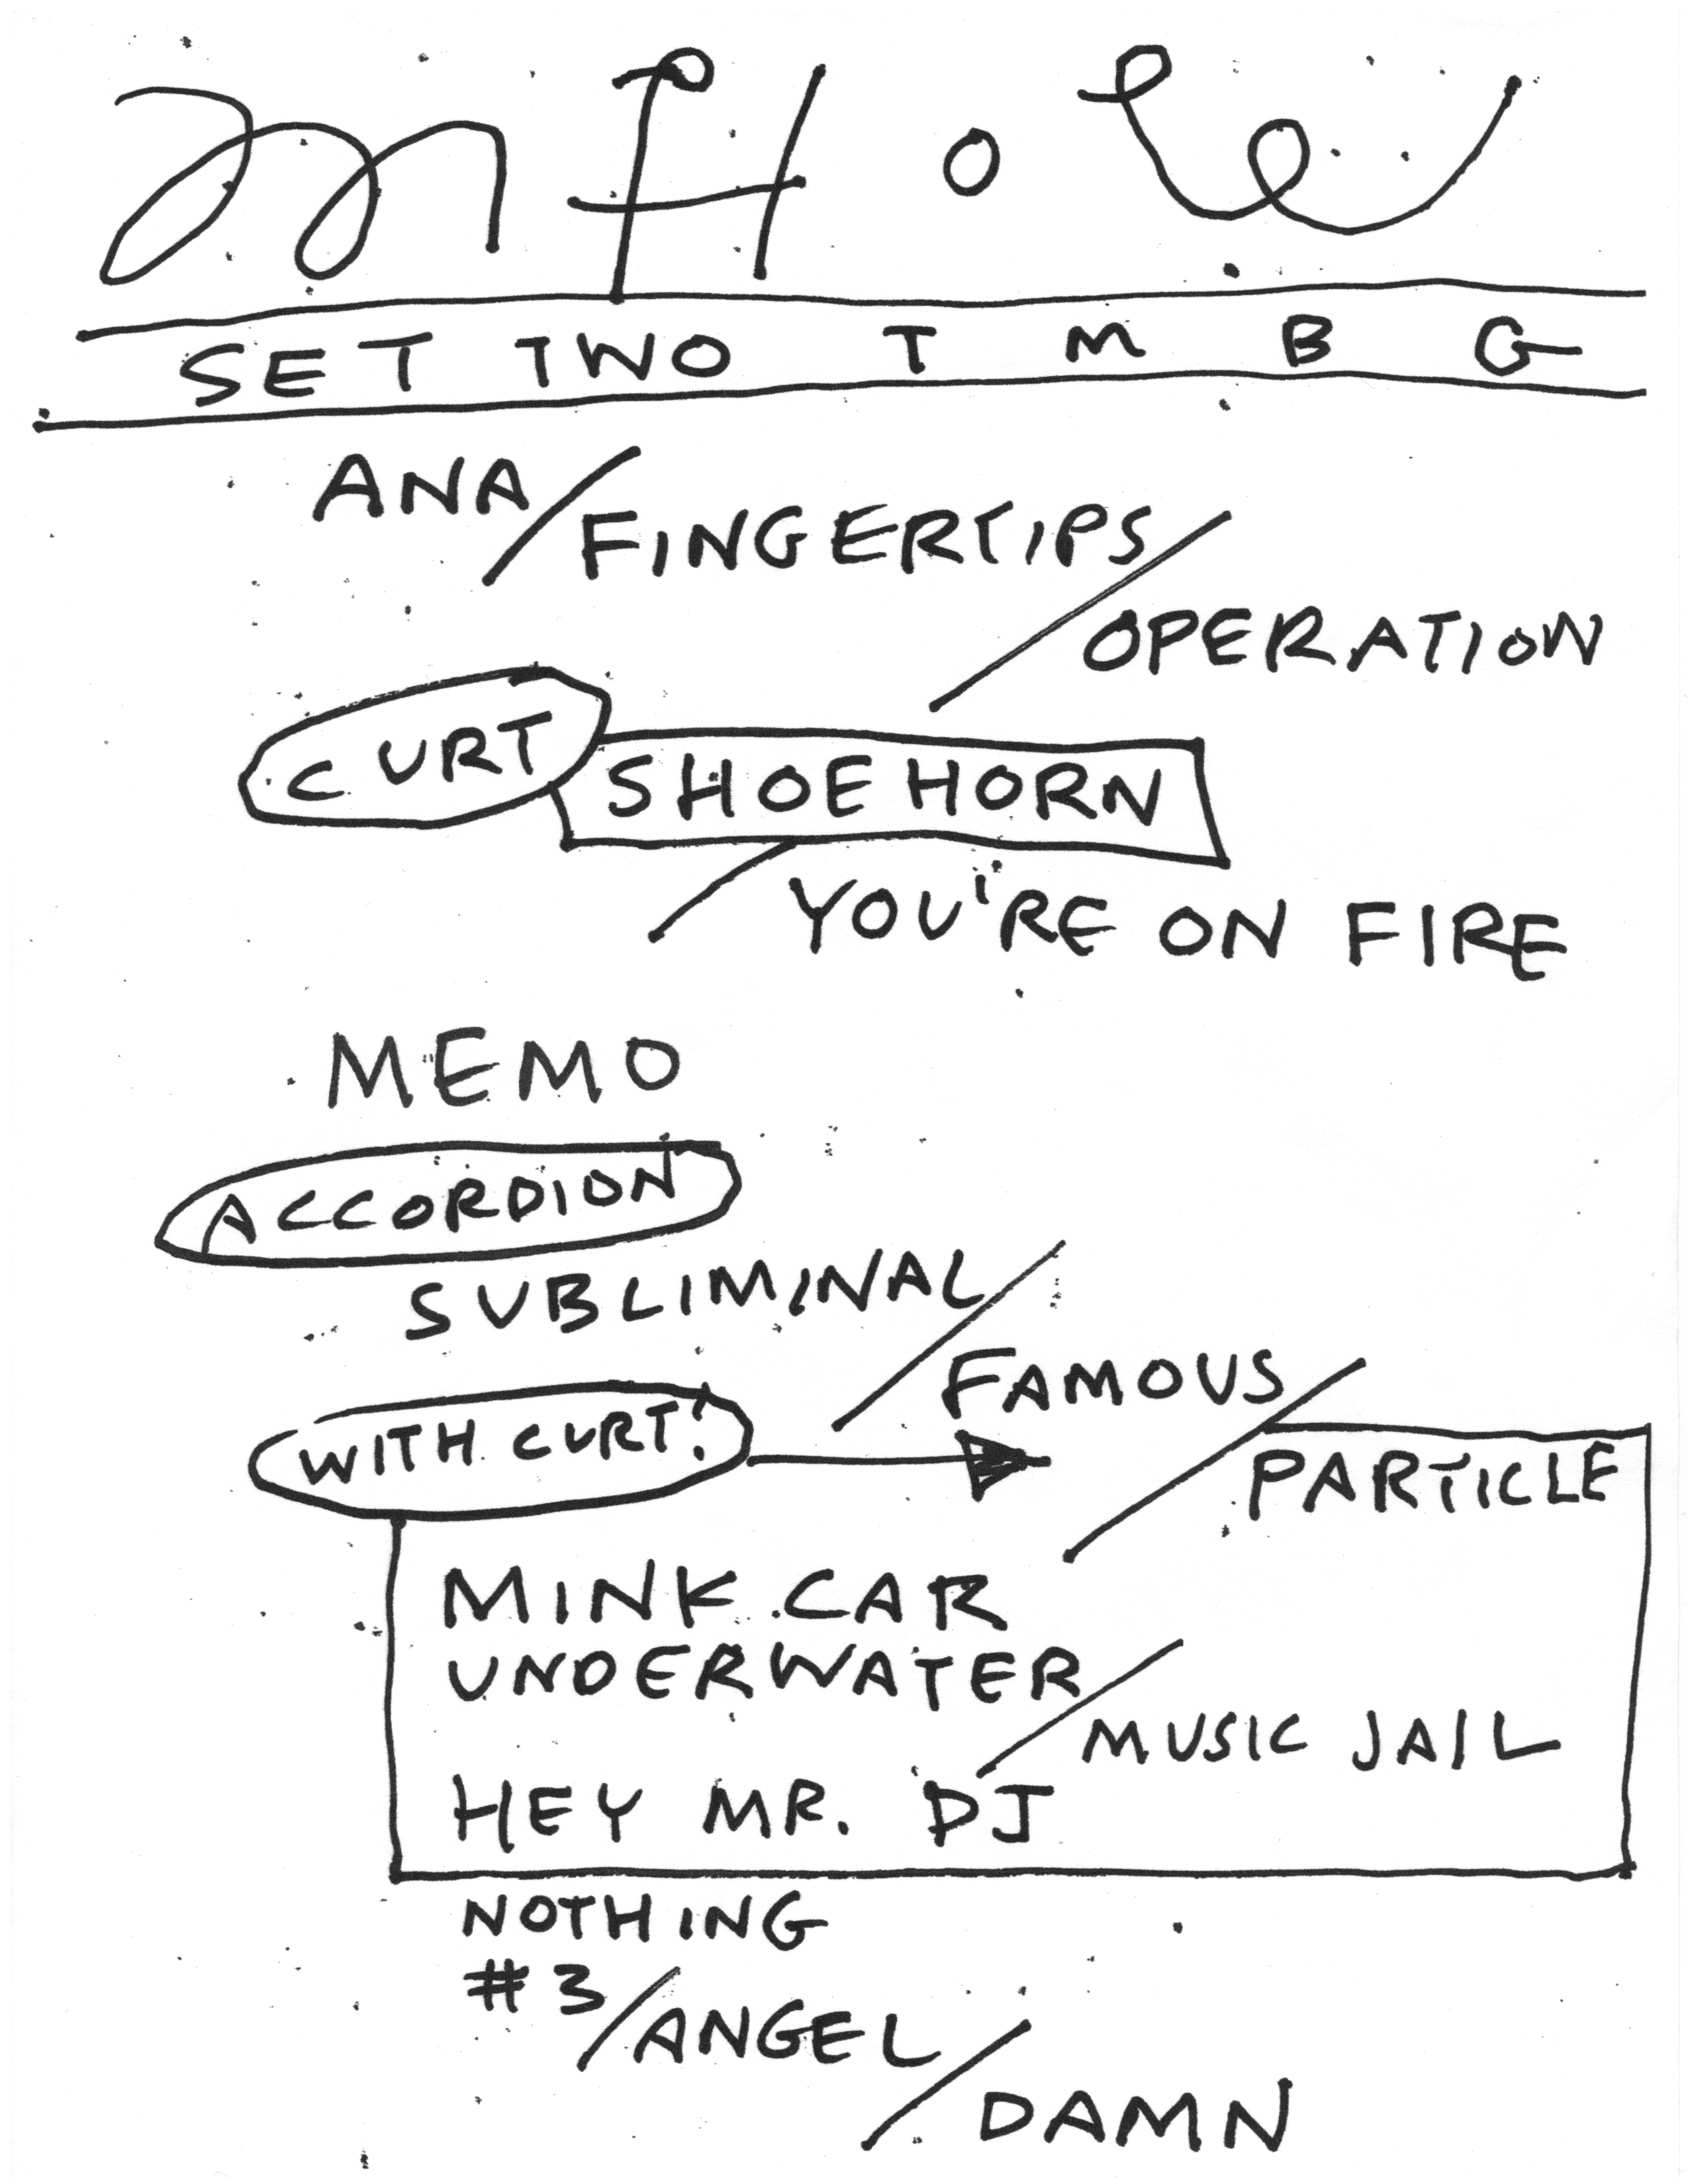 MHOW
SET TWO T M B G
ANA/FINGERTIPS/
OPERATION
CURT SHOEHORN/
YOU'RE ON FIRE
MEMO
ACCORDION
SUBLIMINAL/
FAMOUS/
WITH CURT!
PARTICLE
MINK CAR
UNDERWATER/
MUSIC JAIL
HEY MR. DJ
NOTHING
#3/ANGEL/
DAMN